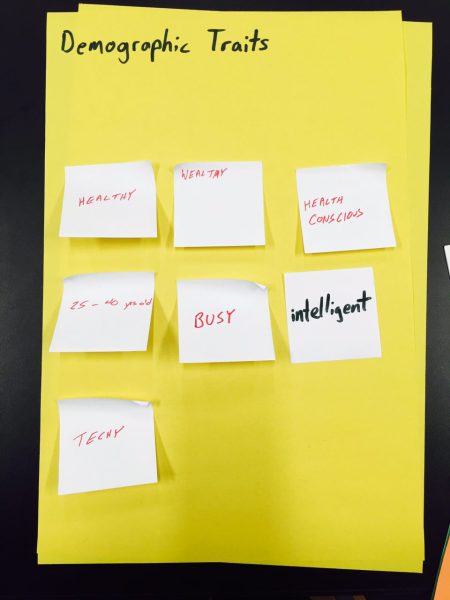 Demographic Traits
HEALTHY
WEALTHY
HEALTH
CONSCIOUS
25 - 40 yrs old
BUSY
intelligent
TECHY